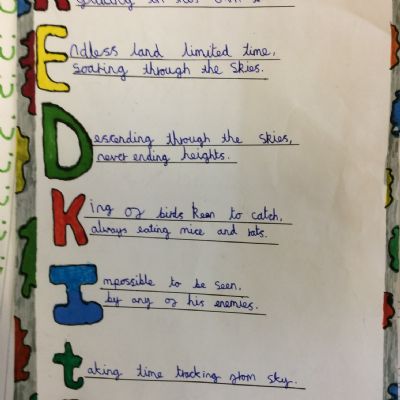 in his
Endless land limited time,
Soaring through the skies.
Descending through the skies,
never ending heights.
King of birds keen to catch,
always eating mice and rats.
Impossible to be seen,
by any of his enemies.
taking time tracking from sky.